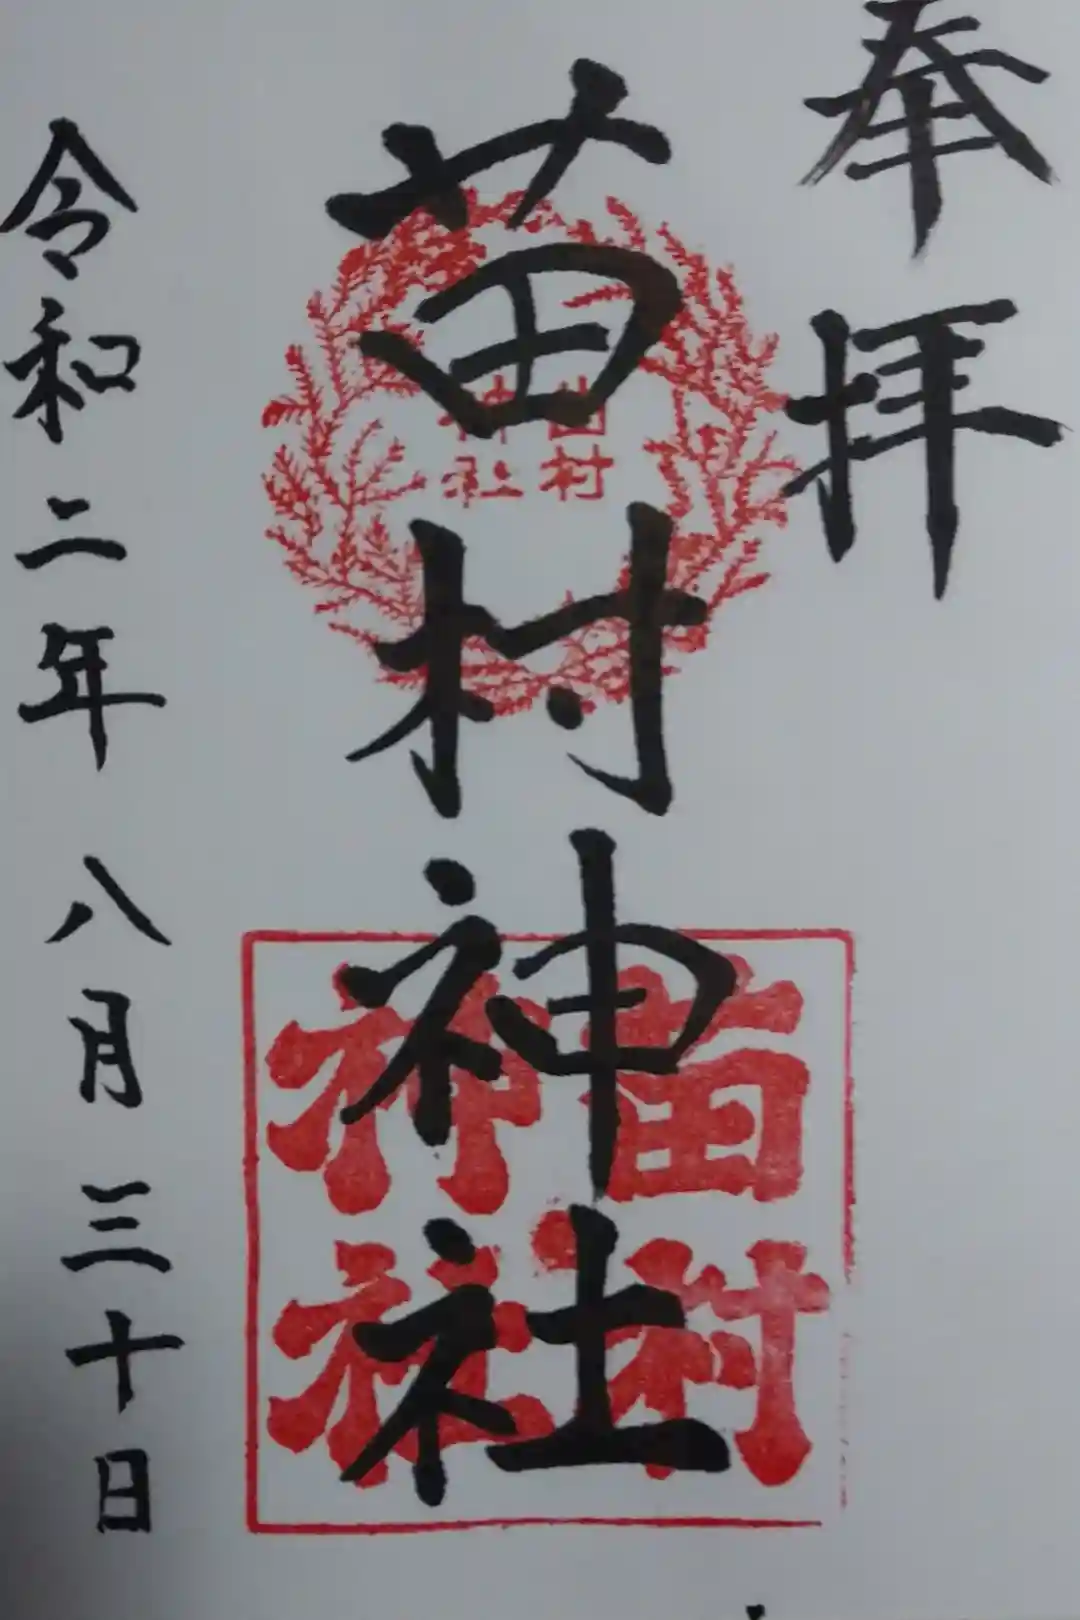 奉拝
苗村神社
苗村
神社
苗村
神社
令和二年八月三十日